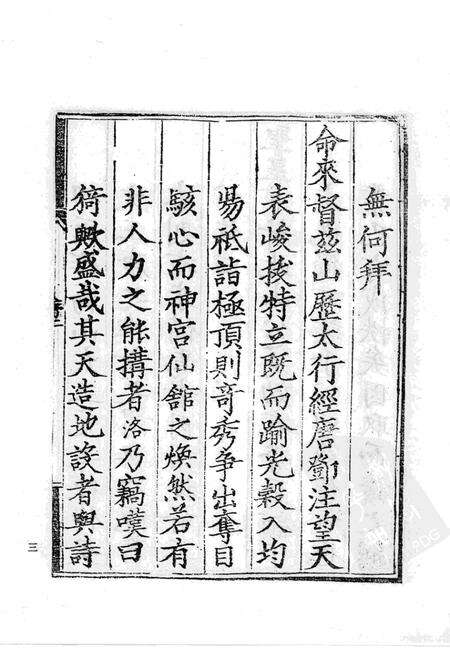 無何拜
命來督茲山歷太行經唐鄧注望天
表峻拔特立既而踰光穀入均
昜祗詣極頂則竒秀争出奪目
駭心而神宫仙舘之煥然若有
非人力之能搆者洛乃竊嘆曰
猗歟盛哉其天造地設者與詩
三